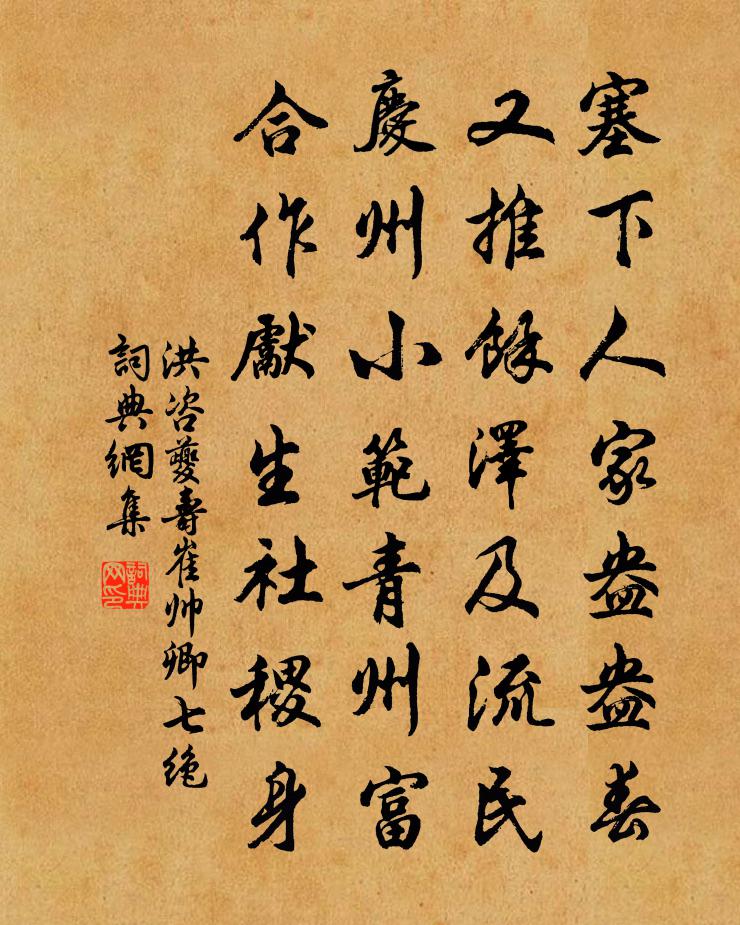 塞下人家盎盎春
又推餘澤及流民
慶州小範青州富
合作獻生社稷身
洪咨夔壽崔帅卿七绝
詞典網集
詞典网印